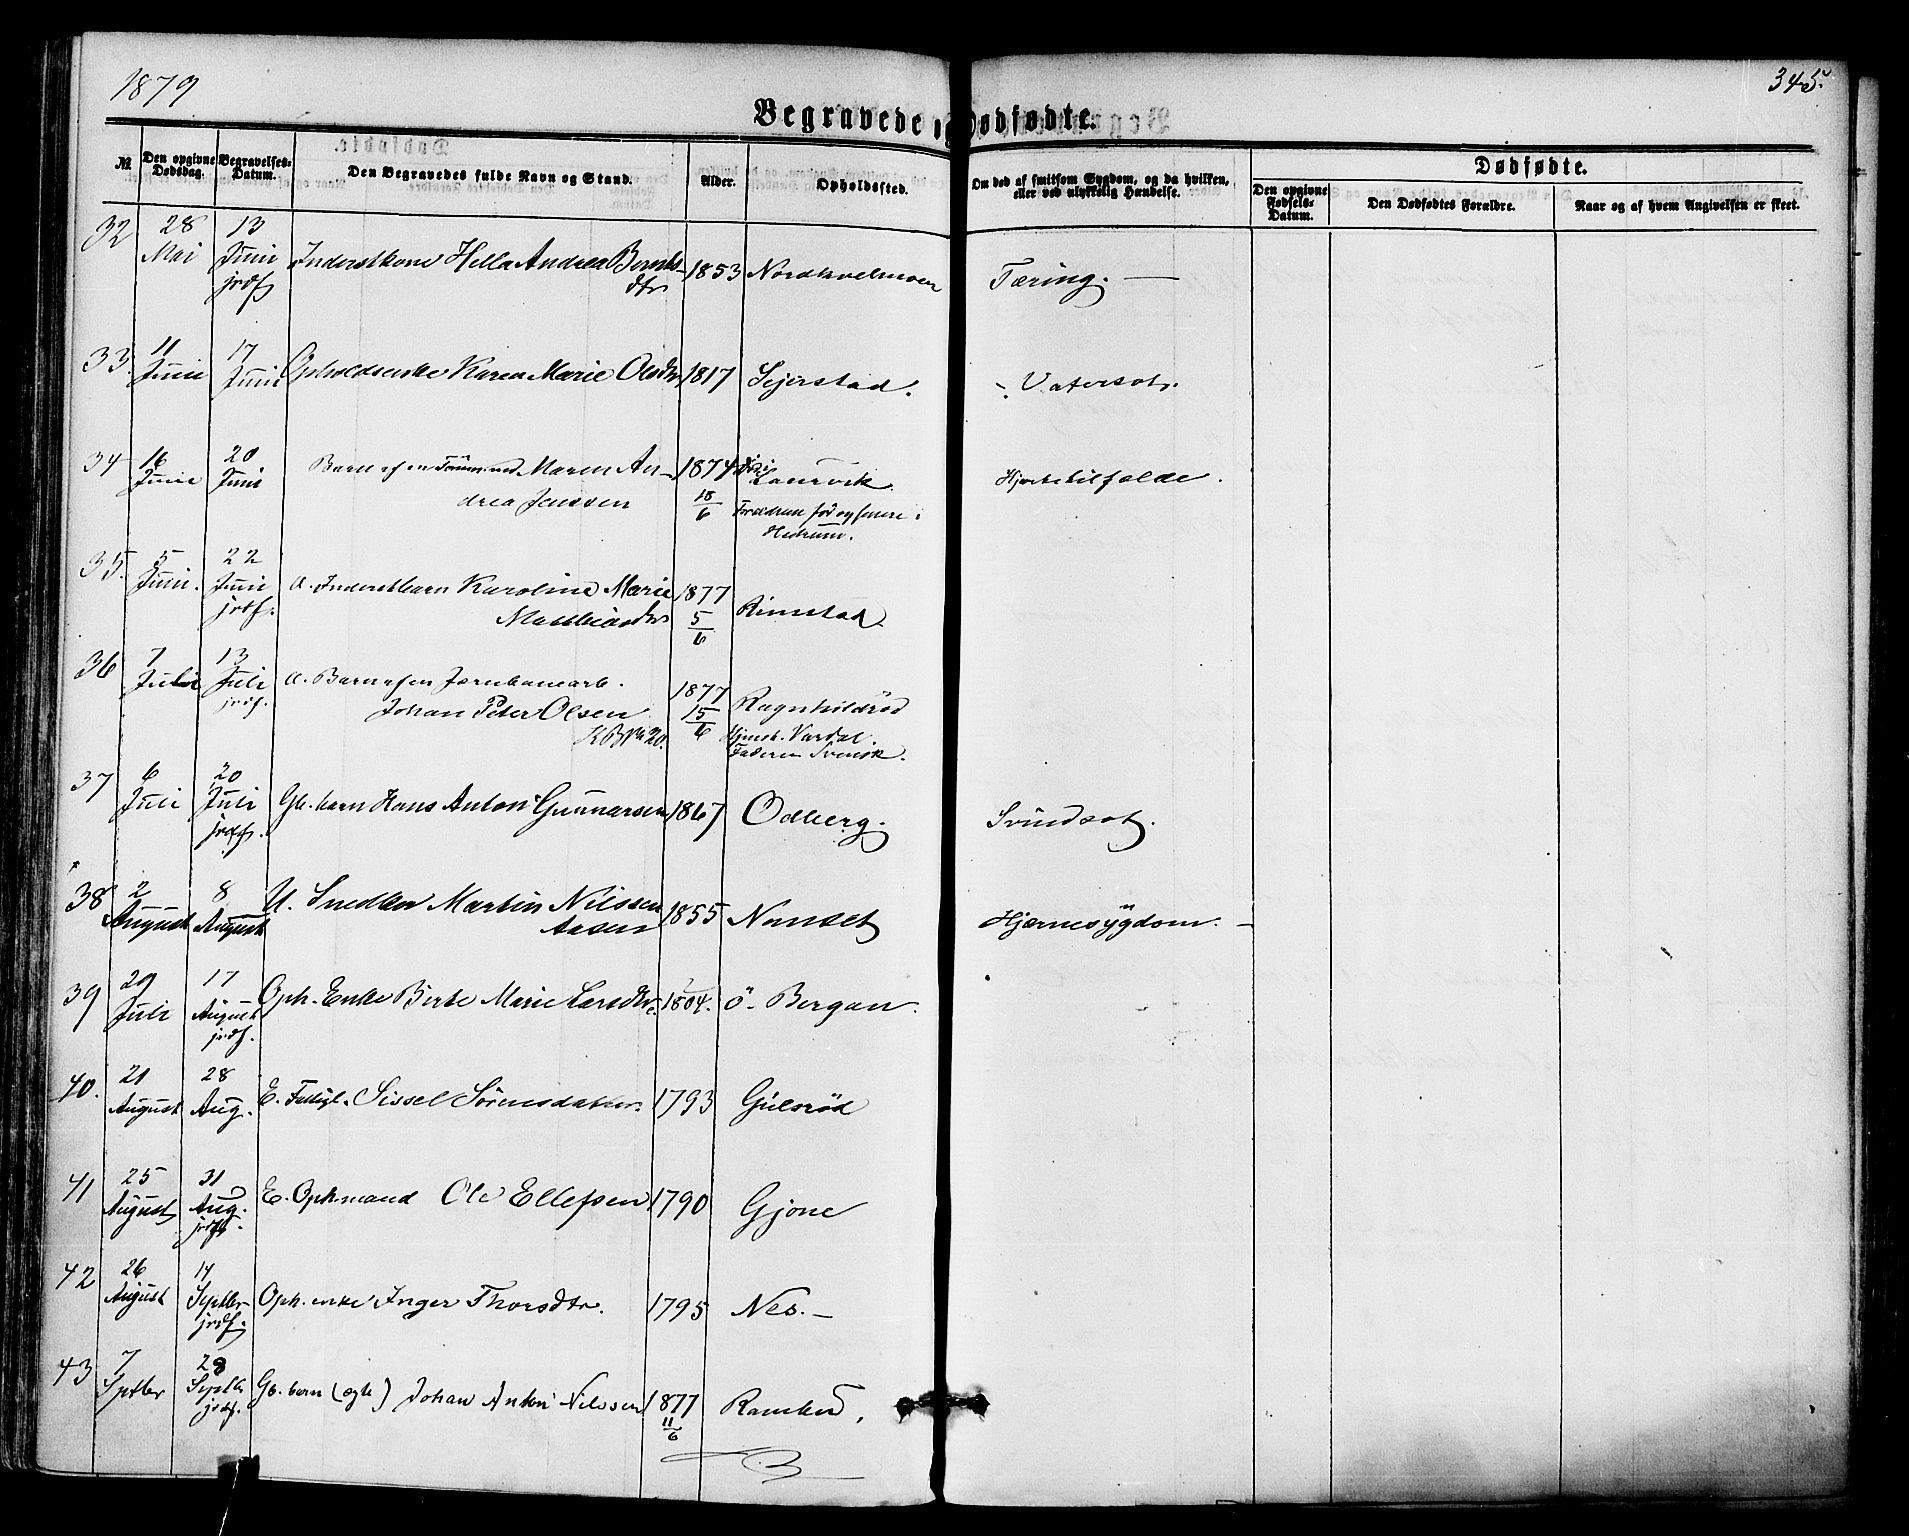 1879
345.
Begravede og Dødfødte.
№
Den opgivne Dødsdag.
Begravelses-Datum.
Den Begravedes fulde Navn og Stand.
Alder.
Opholdssted.
Om død af smitsom Sygdom, og da hvilken, eller ved ulykkelig Hændelse.
Dødfødte.
Den opgivne Fødsels-Datum.
Den Dødfødtes Forældre.
Naar og af hvem Angivelsen er skeet.
32 28 Mai 13 Juni jrdf Inderstkone Hella Andrea Berntsdtr 1853 Nordkvelmoen Tæring. —
33. 11 Juni 17 Juni Opholdsenke Karen Marie Olsdtr 1817 Sejerstad. Vatersot.
34 16 Juni 20 Juni Barn af Maren Andrea Jenssen 1874 18/6 Laurvik Hedrum. Hjertetilfælde.
35. 5 Juni. 22 Juni jrdf. U. Inderstbarn Karoline Marie Mathiasdtr 1877 5/6 Rimstad
36 7 Juli 13 Juli jrdf. U. Barn af en Jernbanearb. Johan Peter Olsen 1877 15/6 Ragnhildröd
Hjemst. Vardal. Faderen Svensk.
37 6 Juli 20 Juli jrdf. Gb. barn Hans Anton Gunnarsen 1867 Odberg. Svindsot.
38 2 August 8 August U. Snedker Martin Nilssen Aasen 1855 Nanset Hjærnesygdom. —
39 29 Juli 17 August jrdf. Oph. Enke Birte Marie Larsdtr. 1804. Ö. Bergan.
40. 21 August 28 Aug. E. Fattigl. Sissel Sörensdatter. 1793 Gulsröd
41 25 August 31 Aug. jrdf. E. Oph.mand Ole Ellefsen 1790 Gjone
42 26 August 14 Septbr jrdf. Oph. enke Inger Thorsdtr. 1795 Nes. —
43 7 Sptbr 28 Septbr jrdf. Gb. barn (ægte) Johan Anton Nilssen 1877 11/6